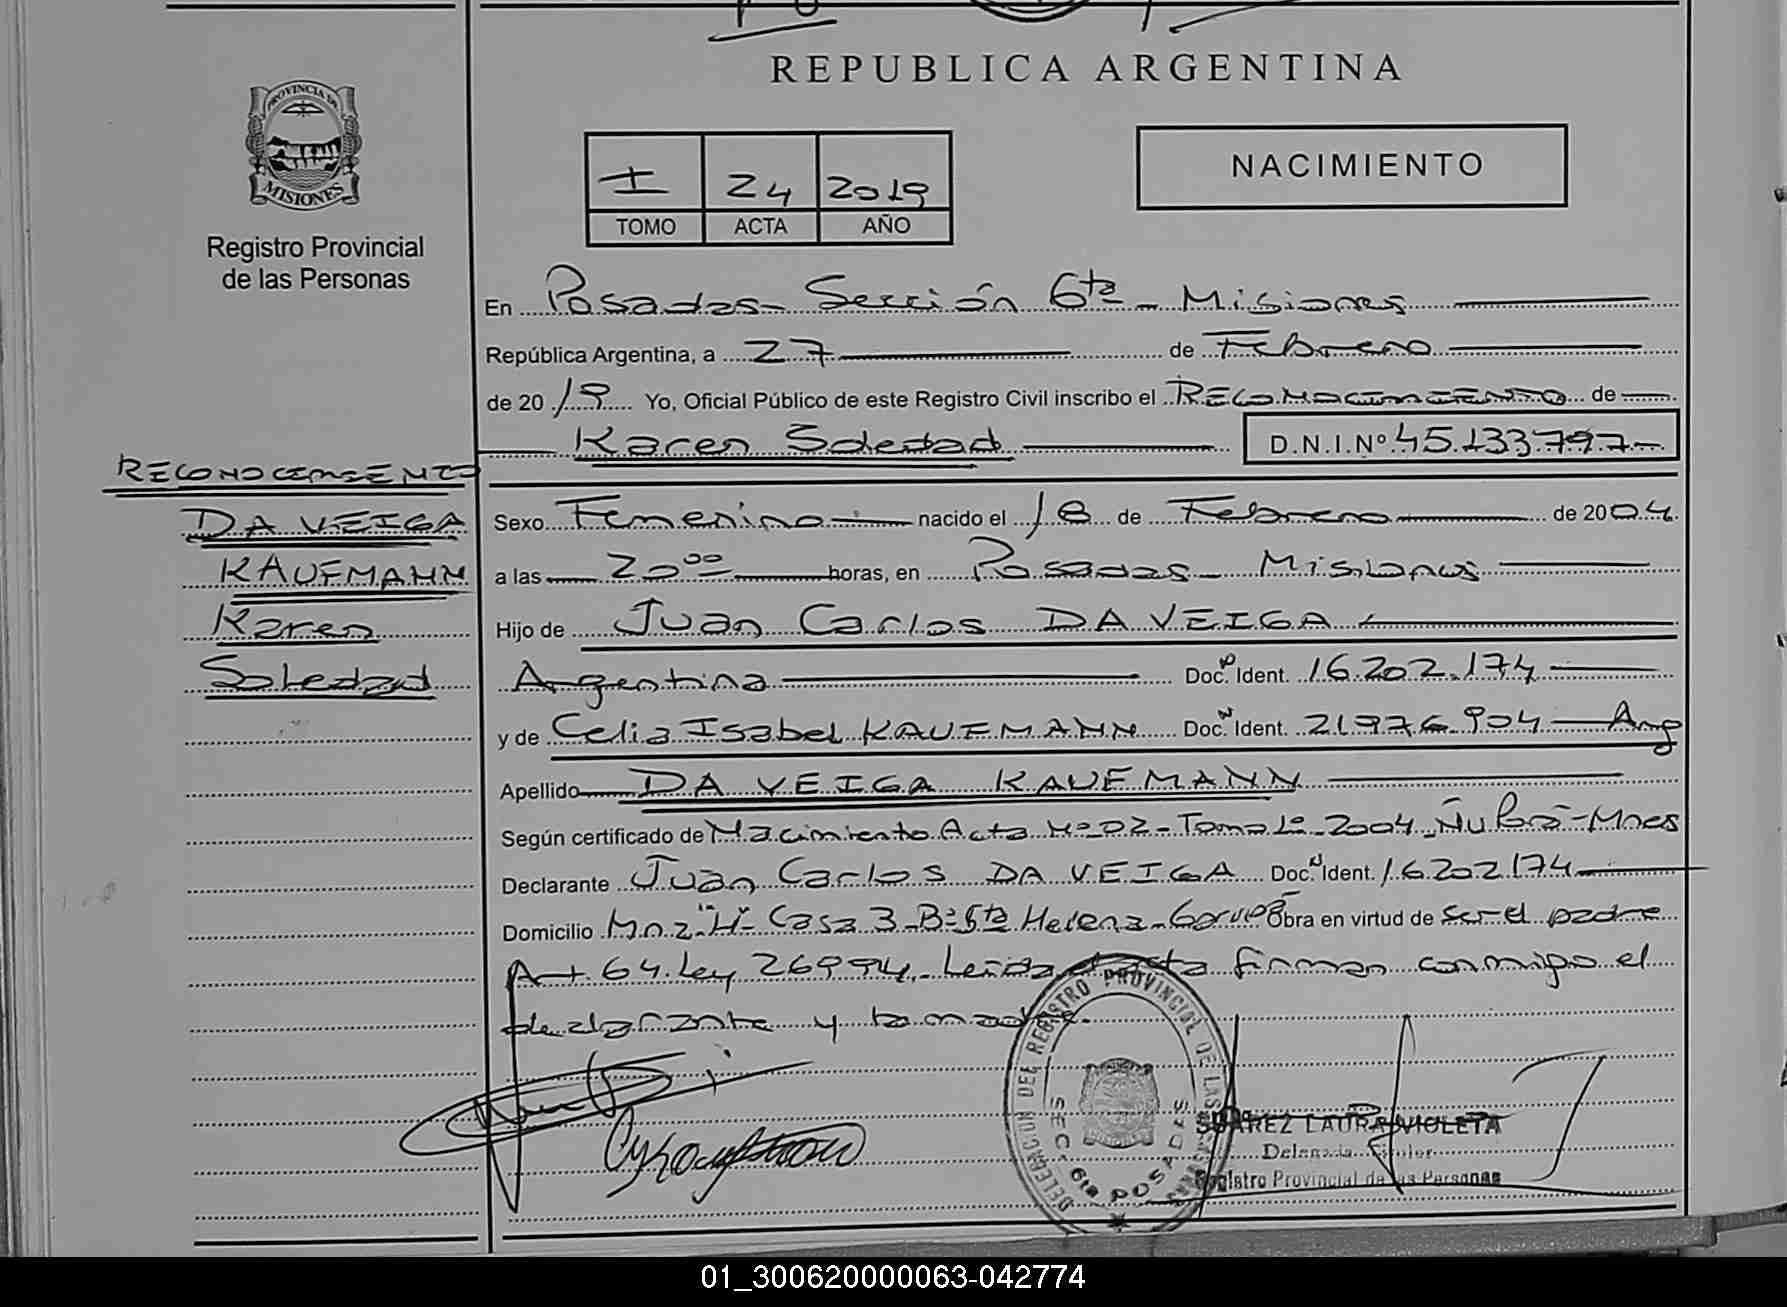 REPUBLICA ARGENTINA
PROVINCIA DE
MISIONES
Registro Provincial
de las Personas
I 24 2019
TOMO ACTA AÑO
NACIMIENTO
En Posadas - Sección 6ta - Misiones
República Argentina, a 27 de Febrero
de 2019 Yo, Oficial Público de este Registro Civil inscribo el RECONOCIMIENTO de
Karen Soledad D.N.I.Nº 45.133797-
RECONOCIMIENTO
DA VEIGA
KAUFMANN
Karen
Soledad
Sexo Femenino nacido el 18 de Febrero de 2004
a las 20 00 horas, en Posadas - Misiones
Hijo de Juan Carlos DA VEIGA
Argentina Doc. Ident. 16.202.174
y de Celia Isabel KAUFMANN Doc. Ident. 21.976.904 - Arg
Apellido DA VEIGA KAUFMANN
Según certificado de Nacimiento Acta Nº 02 - Tomo 1º - 2004 - Ñu Porã - Mnes
Declarante Juan Carlos DA VEIGA Doc. Ident. 16.202.174
Domicilio Mnz "H" Casa 3 - Bº Sta Helena - Garupá Obra en virtud de ser el padre
Art. 64. Ley 26994. Leída el acta firman conmigo el
declarante y la madre.
DELEGACION DEL REGISTRO PROVINCIAL DE LAS PERSONAS
SECC. 6ta POSADAS
SUAREZ LAURA VIOLETA
Delegada Titular
Registro Provincial de las Personas
01_300620000063-042774